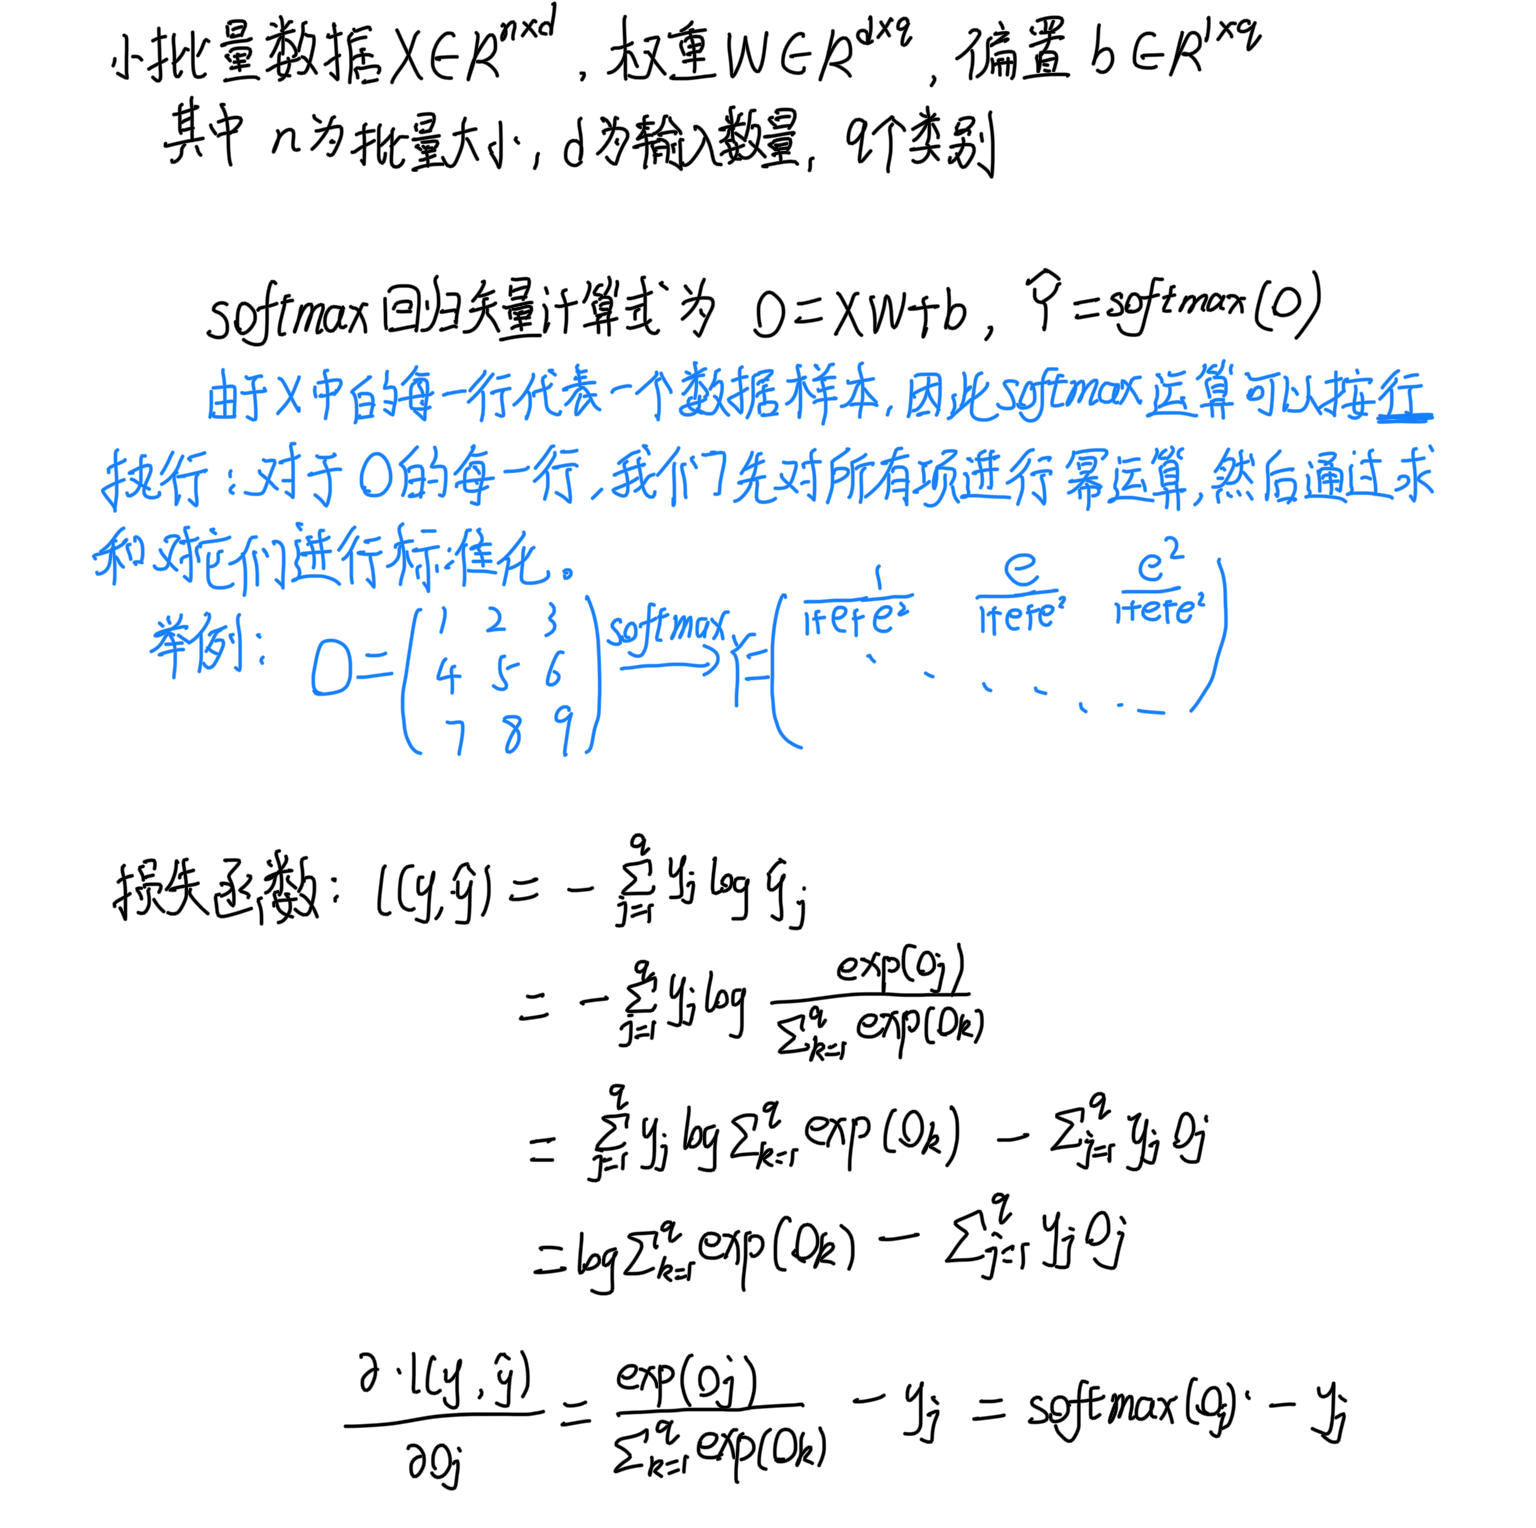 小批量数据 X∈R^{n×d}，权重 W∈R^{d×q}，偏置 b∈R^{1×q}
其中 n为批量大小，d为输入数量，q个类别
softmax回归矢量计算式为 O=XW+b，Ŷ=softmax(O)
由于X中的每一行代表一个数据样本，因此softmax运算可以按行
执行：对于O的每一行，我们先对所有项进行幂运算，然后通过求
和对它们进行标准化。
举例：O=(1 2 3; 4 5 6; 7 8 9) softmax→ Y=(1/(1+e+e²) e/(1+e+e²) e²/(1+e+e²) ......)
损失函数：l(y,ŷ) = - ∑_{j=1}^{q} y_j log ŷ_j
= - ∑_{j=1}^{q} y_j log exp(O_j)/∑_{k=1}^{q} exp(O_k)
= ∑_{j=1}^{q} y_j log ∑_{k=1}^{q} exp(O_k) - ∑_{j=1}^{q} y_j O_j
= log ∑_{k=1}^{q} exp(O_k) - ∑_{j=1}^{q} y_j O_j
∂·l(y,ŷ)/∂O_j = exp(O_j)/∑_{k=1}^{q} exp(O_k) - y_j = softmax(O_j)· - y_j